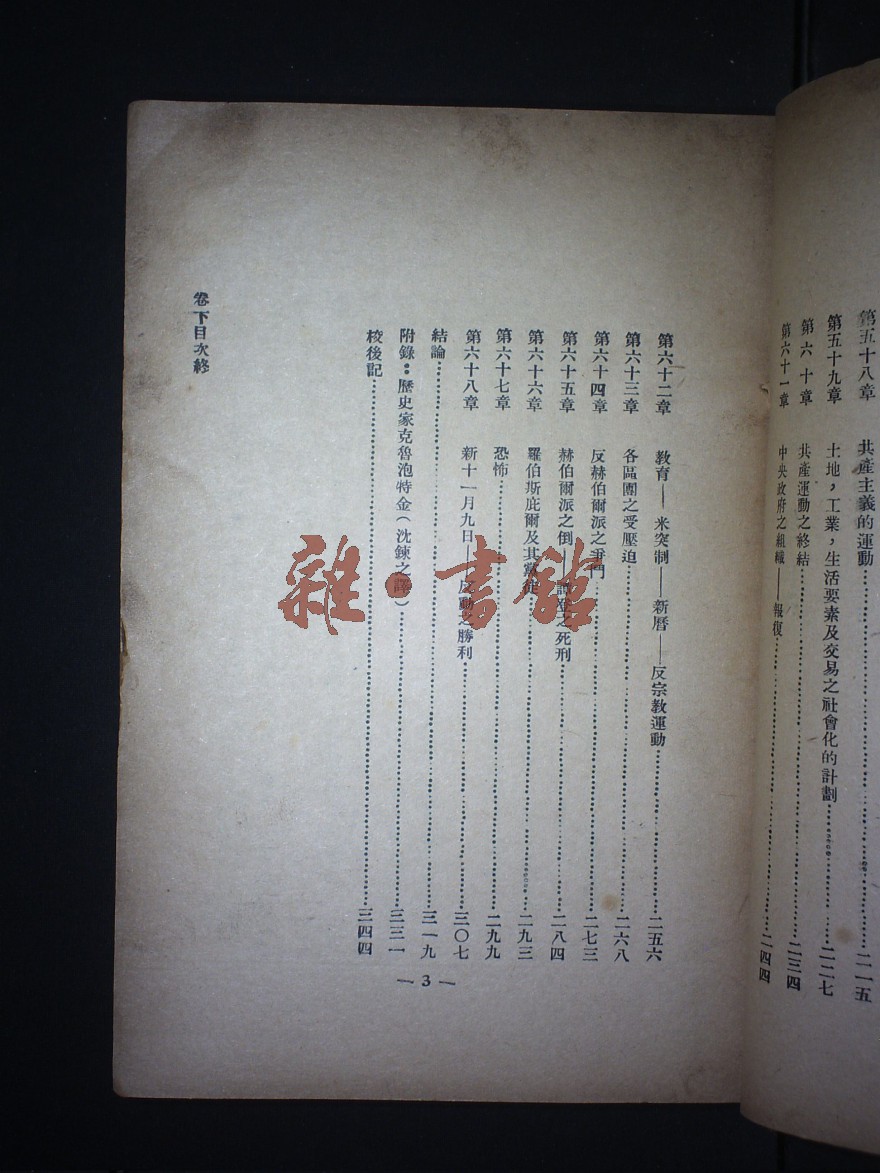 第五十八章 共產主義的運動……二一五
第五十九章 土地，工業，生活要素及交易之社會化的計劃……二二七
第六十章 共產運動之終結……二三四
第六十一章 中央政府之組織——報復……二四四
第六十二章 教育——米突制——新曆——反宗教運動……二五六
第六十三章 各區團之受壓迫……二六八
第六十四章 反赫伯爾派之爭鬥……二七三
第六十五章 赫伯爾派之倒——之死刑……二八四
第六十六章 羅伯斯庇爾及其黨徒……二九三
第六十七章 恐怖……二九九
第六十八章 新十一月九日——反動之勝利……三〇七
結論……三一九
附錄：歷史家克魯泡特金（沈鍊之譯）……三三一
校後記……三四四
卷下目次終
— 3 —
雜·書館